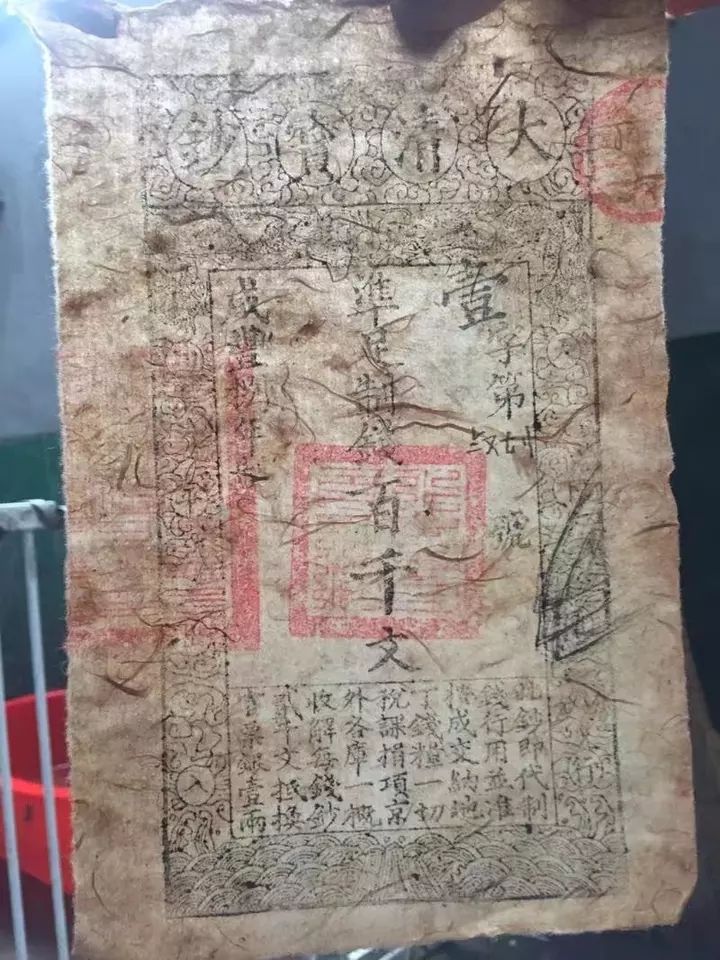 大清寶鈔
壹字第號
準足制錢百千文
咸豐年
此鈔即代制
錢行用並准
按成交納地
丁錢糧一切
稅課捐項京
外各庫一概
收解每錢鈔
貳千文抵換
官票銀壹兩